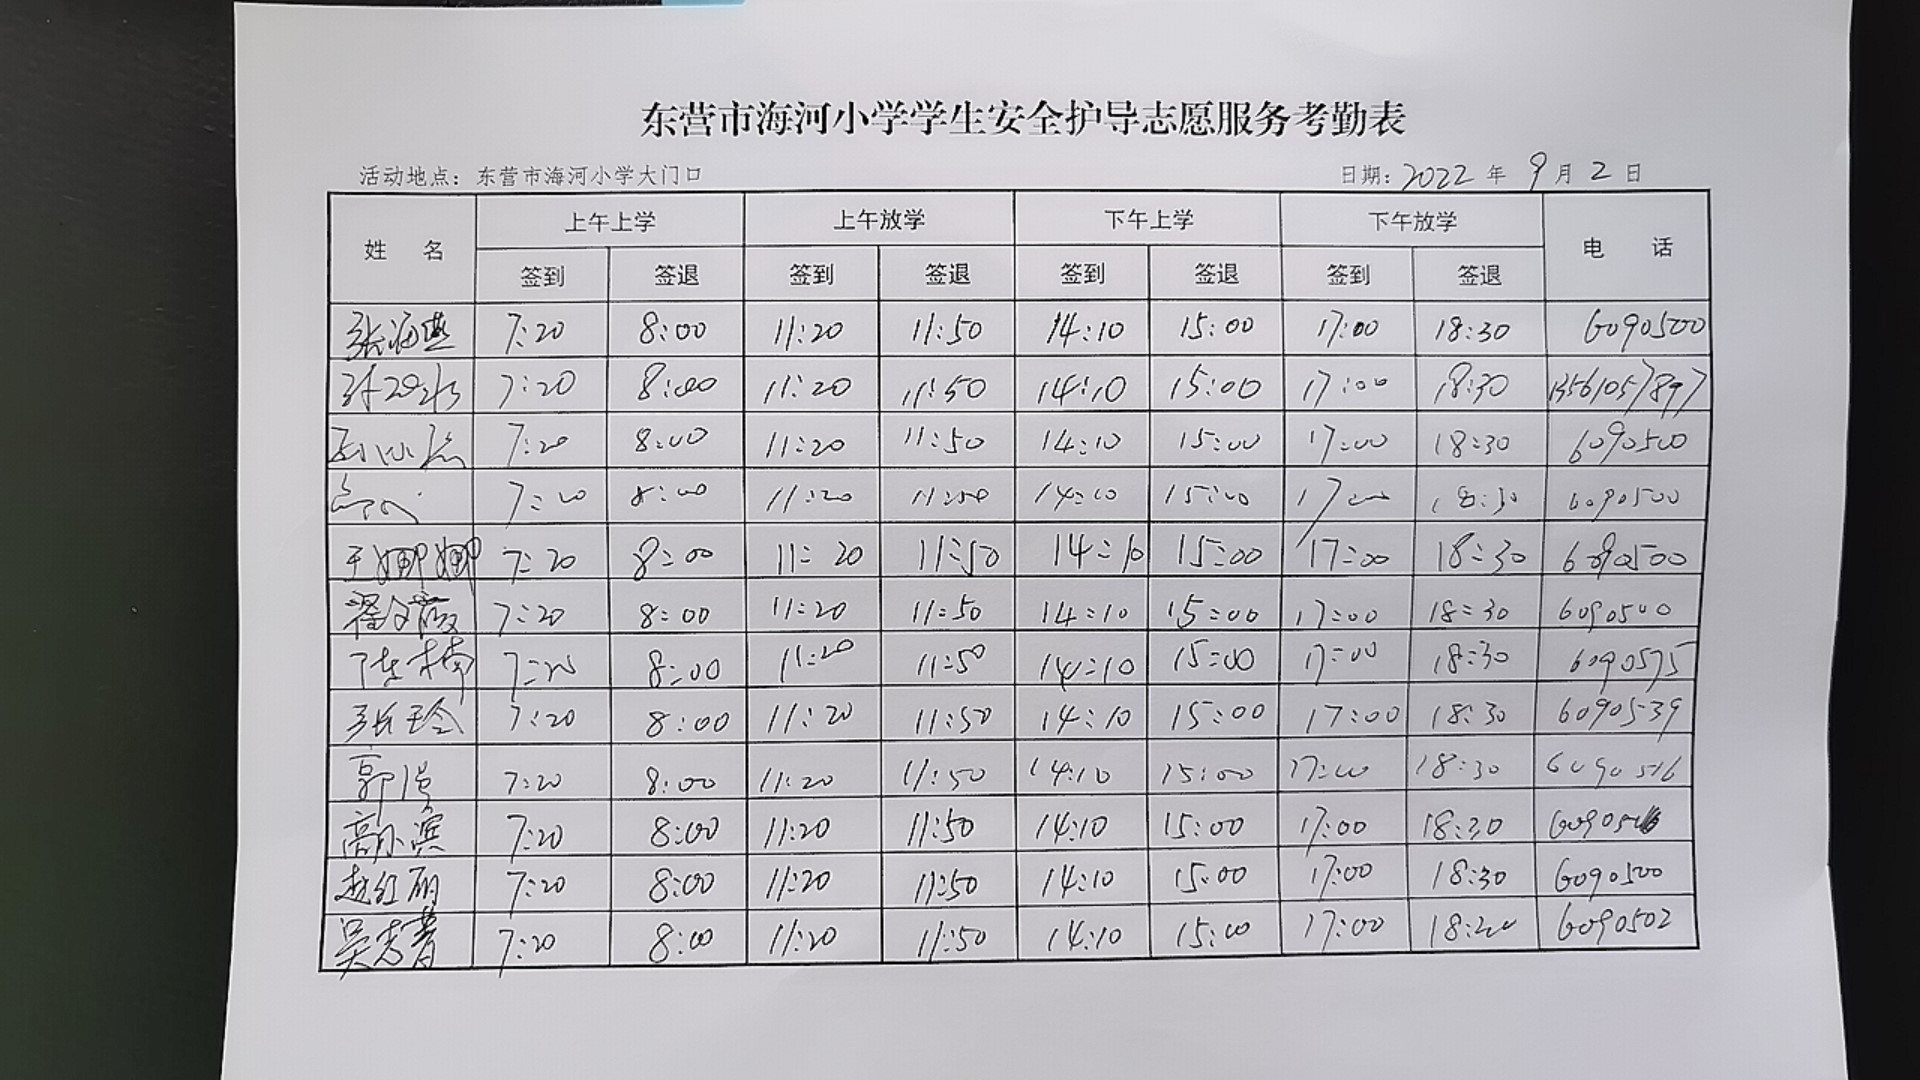 东营市海河小学学生安全护导志愿服务考勤表
活动地点：东营市海河小学大门口 日期：2022 年 9 月 2 日
姓 名 上午上学 上午放学 下午上学 下午放学 电 话
签到 签退 签到 签退 签到 签退 签到 签退
张海燕 7:20 8:00 11:20 11:50 14:10 15:00 17:00 18:30 6090500
7:20 8:00 11:20 11:50 14:10 15:00 17:00 18:30 13561057897
7:20 8:00 11:20 11:50 14:10 15:00 17:00 18:30 6090500
7:20 8:00 11:20 11:50 14:10 15:00 17:00 18:30 6090500
王娜娜 7:20 8:00 11:20 11:50 14:10 15:00 17:00 18:30 6090500
翟文薇 7:20 8:00 11:20 11:50 14:10 15:00 17:00 18:30 6090500
陈楠 7:20 8:00 11:20 11:50 14:10 15:00 17:00 18:30 6090575
张玲 7:20 8:00 11:20 11:50 14:10 15:00 17:00 18:30 6090539
郭 7:20 8:00 11:20 11:50 14:10 15:00 17:00 18:30 6090516
高小滨 7:20 8:00 11:20 11:50 14:10 15:00 17:00 18:30
赵红丽 7:20 8:00 11:20 11:50 14:10 15:00 17:00 18:30 6090500
吴志菁 7:20 8:00 11:20 11:50 14:10 15:00 17:00 18:20 6090502